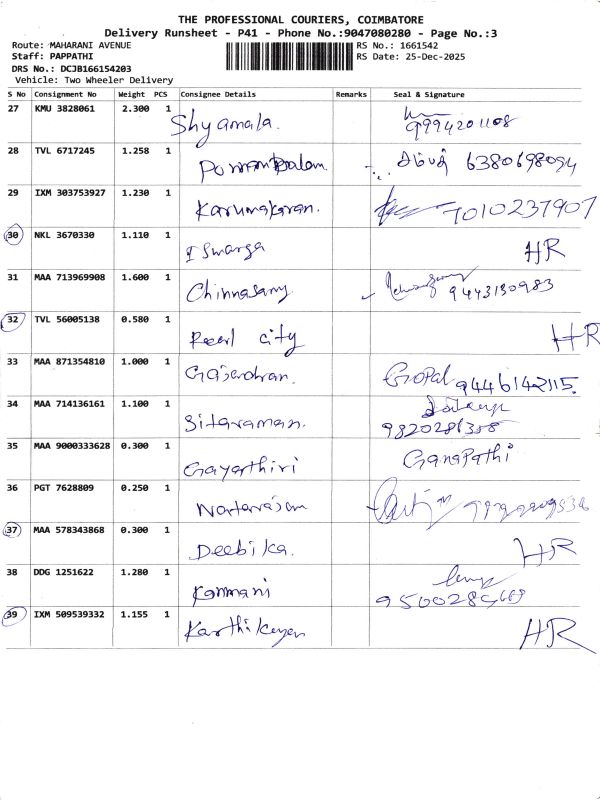 THE PROFESSIONAL COURIERS, COIMBATORE
Delivery Runsheet - P41 - Phone No.:9047080280 - Page No.:3
Route: MAHARANI AVENUE
Staff: PAPPATHI
DRS No.: DCJB166154203
Vehicle: Two Wheeler Delivery
RS No.: 1661542
RS Date: 25-Dec-2025
S No Consignment No Weight PCS Consignee Details Remarks Seal & Signature
27 KMU 3828061 2.300 1 Shyamala. 9994201108
28 TVL 6717245 1.258 1 6380698094
29 IXM 303753927 1.230 1 Karunakaran. 7010237907
30 NKL 3670330 1.110 1 Iswarya HR
31 MAA 713969908 1.600 1 Chinnasamy 9443130983
32 TVL 56005138 0.580 1 Pearl city HR
33 MAA 871354810 1.000 1 Gajendran. Gopal 9446142115.
34 MAA 714136161 1.100 1 Sitaraman.
35 MAA 9000333628 0.300 1 Gayarthiri Ganapathi
36 PGT 7628809 0.250 1 Natarajan
37 MAA 578343868 0.300 1 Deebika. HR
38 DDG 1251622 1.280 1 Kanmani
39 IXM 509539332 1.155 1 Karthikeyan HR